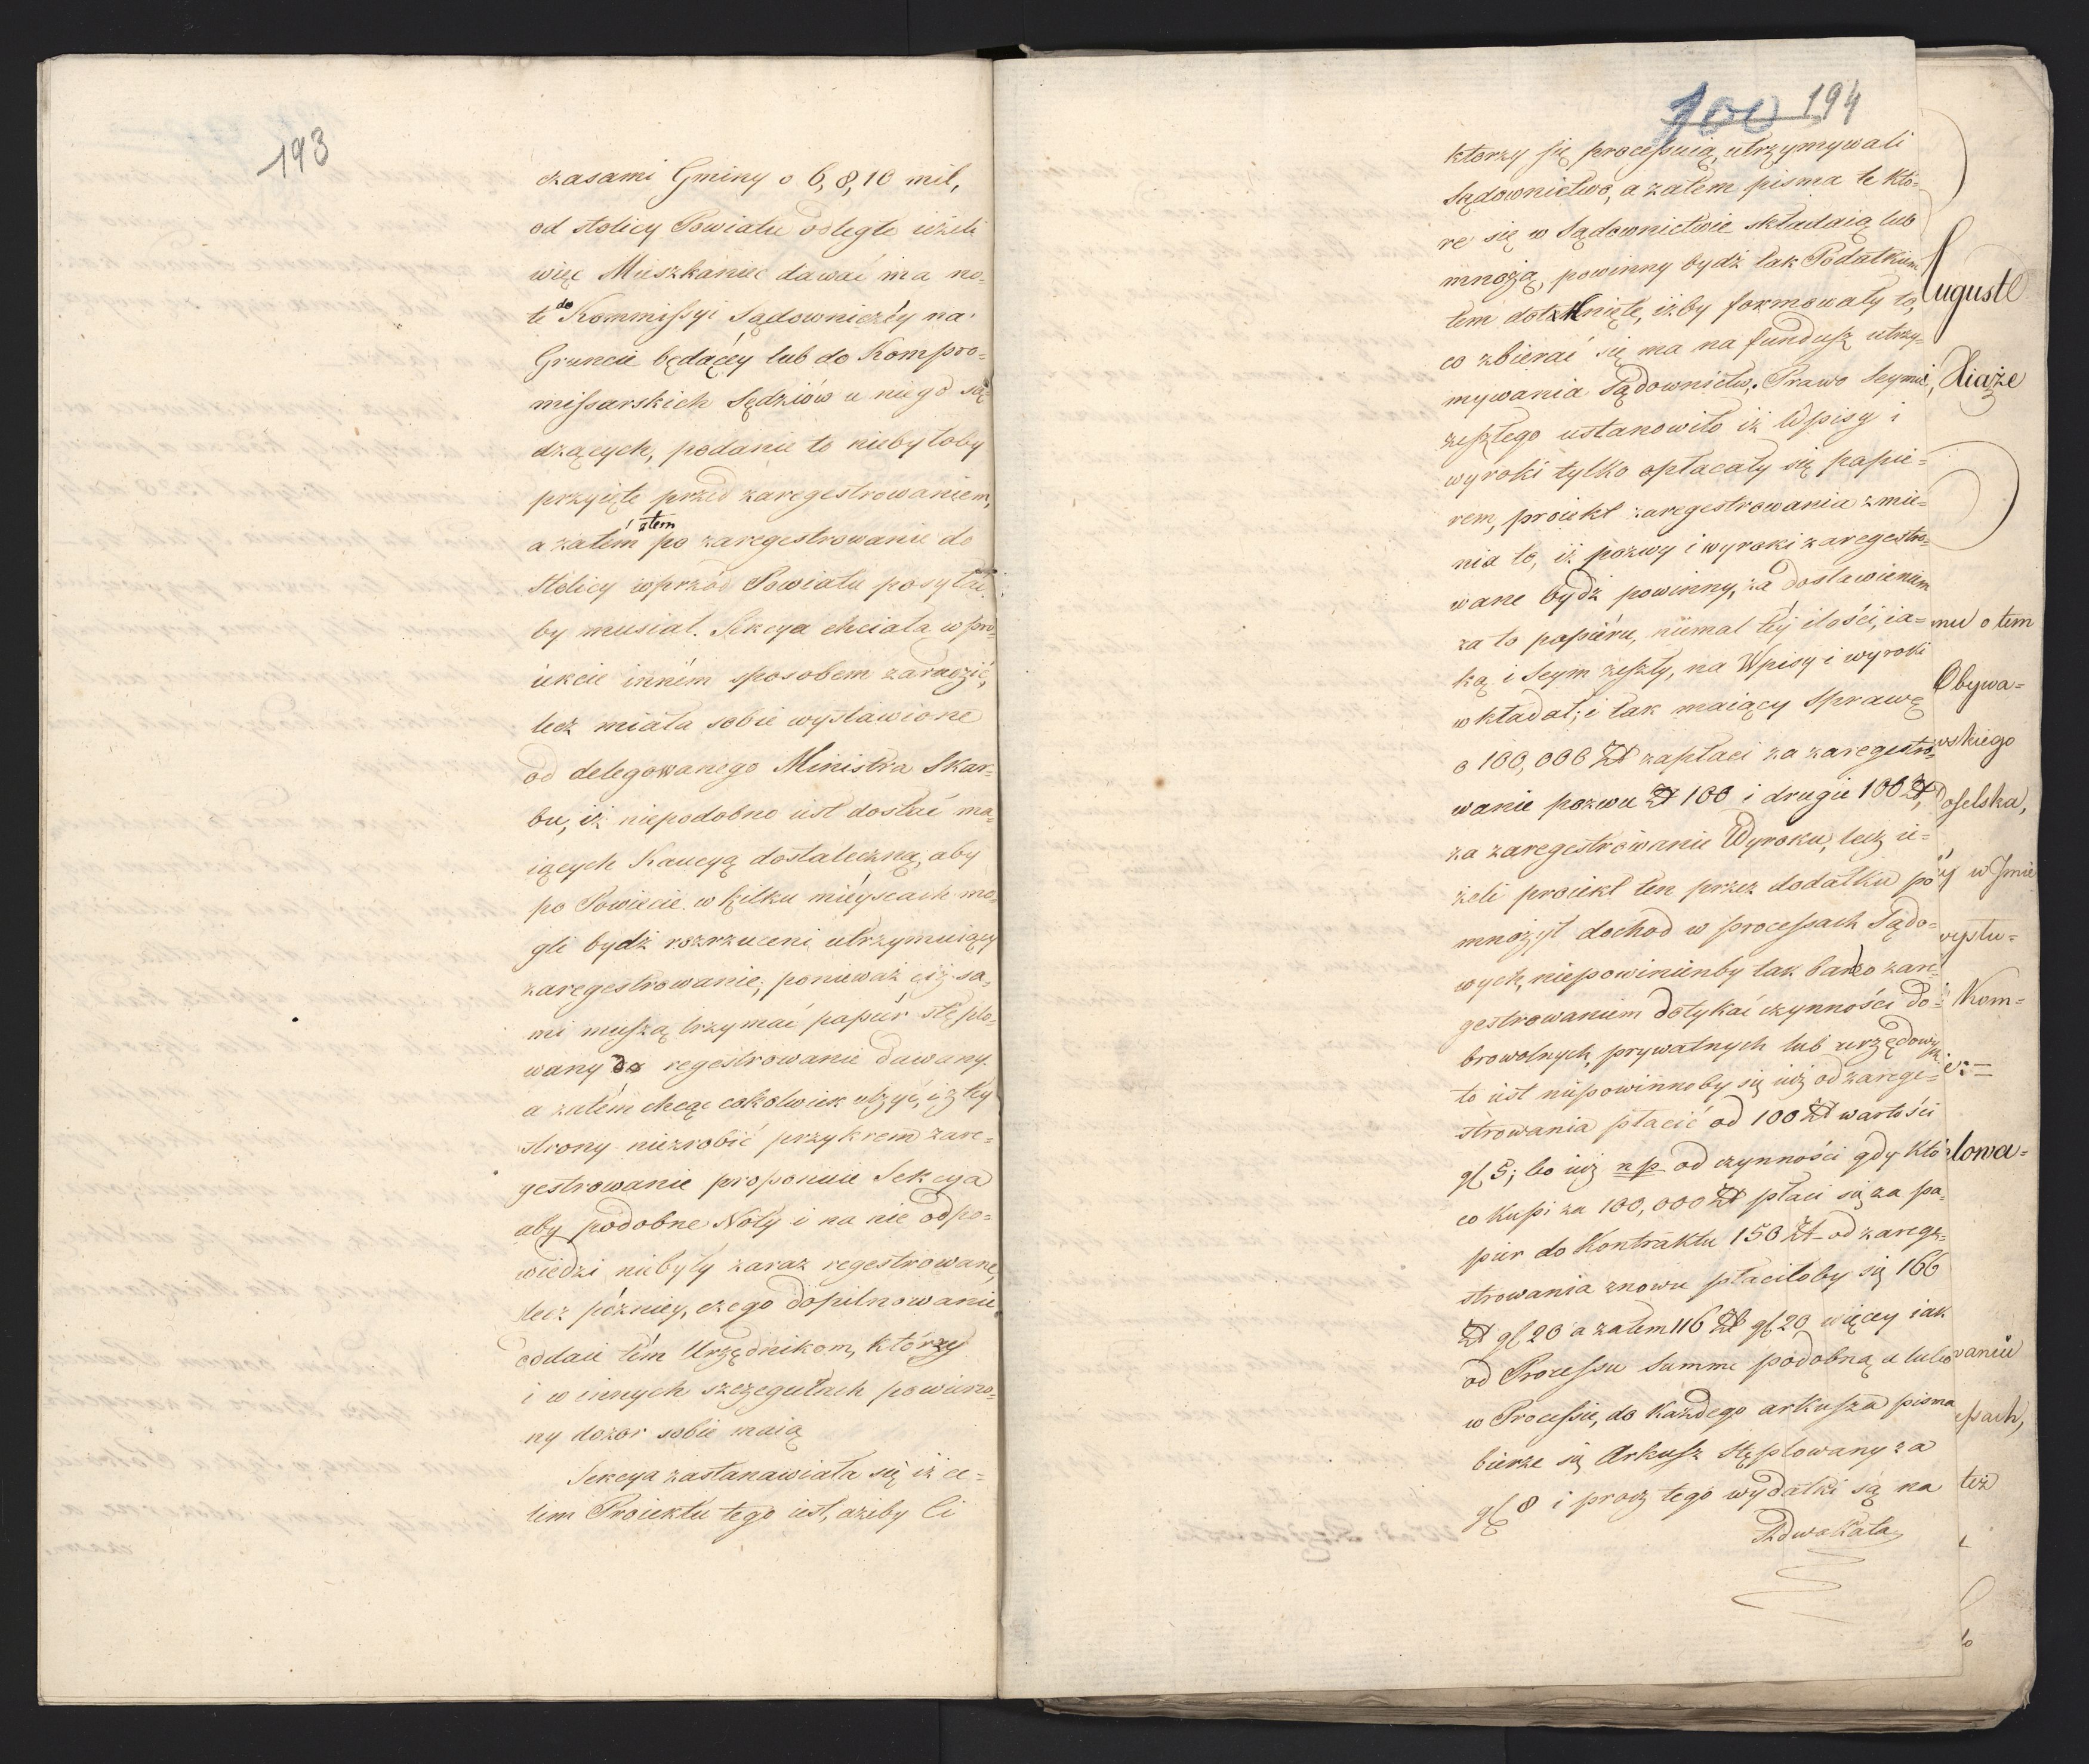 193
czasami Gminy o 6, 8, 10 mil,
od stolicy Powiatu odległe ieżeli
więc Mieszkaniec dawać ma no=
tę do Kommissyi Sądowniczéy na
Gruncie będącéy lub do Kompro=
missarskich Sędziów u niego są=
dzących, podanie to niebyłoby
przyięte przed zaregestrowaniem,
a zatém atem po zaregestrowanie do
Stolicy wprzód Powiatu posyłać
by musiał. Sekcya chciała w pro=
iekcie inném sposobem zaradzić,
lecz miała sobie wystawione
od delegowanego Ministra Skar=
bu, iż niepodobno iest dostać ma=
iących Kaucyą dostateczną; aby
po Powiecie w kilku mieyscach mo=
gli bydź rozrzuceni utrzymuiący
zaregestrowanie; ponieważ ciż sa=
mi muszą trzymać papiér stęplo=
wany do regestrowanie dawany
a zatém chcąc cokolwiek ulżyć, i z téy
strony niezrobić przykrem zare=
gestrowanie proponuie Sekcya
aby podobne Noty i na nie odpo=
wiedzi niebyły zaraz regestrowane,
lecz późniey, czego dopilnowanie
oddaie tém Urzędnikom, którzy
i w innych szczegułach powinno=
ny dozor sobie maią
Sekcya zastanawiała się iż ce=
lem Proiektu tego iest, ażeby Ci
100 194
ktorzy się processuią, utrzymywali
Sądownictwo, a zatem pisma te któ=
re się w Sądownictwie składaią lub
mnożą, powinny bydź tak Podatkiem
tem dotknięte, iżby formowały to,
co zbierać się ma na fundusz utrzy=
mywania Sądownictw. Prawo Seymu
zeszłego ustanowiło iż Wpisy i
wyroki tylko opłacały się papie=
rem, proiekt zaregestrowania zmie=
nia to, iż pozwy i wyroki zaregestro=
wane bydź powinny, za dostawieniem
za to papiéru, niemal téy ilości, ia=
ką i Seym zeszły, na Wpisy i wyroki
wkładał; i tak maiący Sprawę
o 100,000 Zł zapłaci za zaregestro=
wanie pozwu Zł 100 i drugie 100 Zł,
za zaregestrowanie Wyroku, lecz ie=
żeli proiekt ten przez dodatku po
mnożył dochod w processach Sądo=
wych, niepowinienby tak bardzo zare=
gestrowaniem dotykać czynności do=
browolnych, prywatnych lub urzędowych
to iest niepowinnoby się iuż od zarege=
strowania płacić od 100 Zł wartości
gl 5; bo iuż np od czynności gdy kto
co kupi za 100,000 Zł płaci się za pa=
pier do Kontraktu 150 Zł od zarege=
strowania znowu płaciłoby się 166
Zł gl 20 a zatem 116 Zł gl 20 więcey iak
od Processu Summę podobną a lubo
w Processie, do Każdego arkusza pisma
bierze się Arkusz Stęplowany za
gl 8 i procz tego wydatki są na
Adwokata
August
Xiąże
mu o tem
Obywa=
wskiego
Poselska,
y w Jmie
wystu=
Kom=
lowa=
waniu
ssach,
też